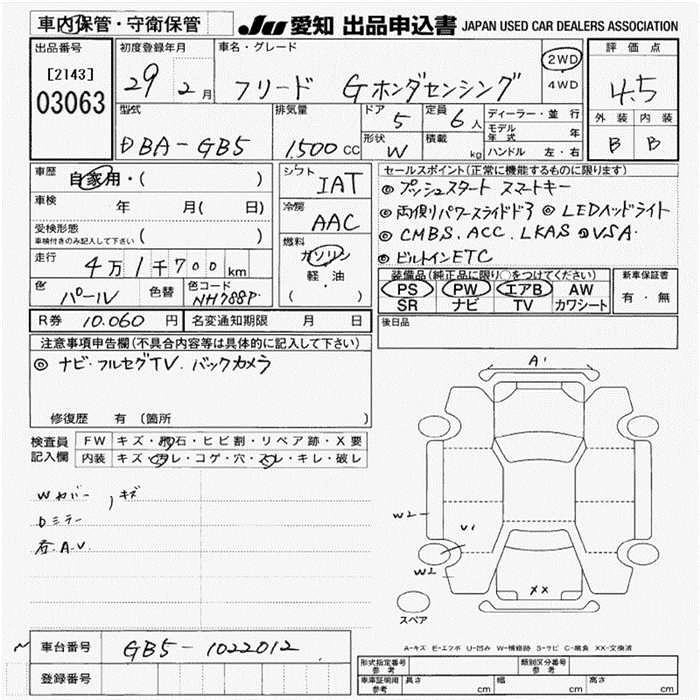 車内保管・守衛保管 JU 愛知 出品申込書 JAPAN USED CAR DEALERS ASSOCIATION
出品番号 初度登録年月 車名・グレード 評価点
[2143] 29年 2月 フリード Gホンダセンシング 2WD 4.5
03063 4WD
型式 排気量 ドア 定員 ディーラー・並行 外装 内装
DBA-GB5 1,500 CC 5 6人 モデル年式 年
形状 積載 B B
W kg ハンドル 左・右
車歴 自家用・( ) シフト IAT セールスポイント(正常に機能するものに限ります)
◎プッシュスタート スマートキー
車検 年 月( 日) 冷房 AAC ◎両側パワースライドドア ◎LEDヘッドライト
受検形態
車検付きのみ記入して下さい ( ) 燃料 ◎CMBS.ACC.LKAS ◎VSA
走行 4万1千700km ガソリン ◎ビルトインETC
軽・油 装備品(純正品に限り○をつけてください) 新車保証書
色 パール 色替 色コード NH788P ( ) PS PW エアB AW 有・無
SR ナビ TV カワシート
R券 10.060円 名変通知期限 月 日 後日品
注意事項申告欄(不具合内容等は具体的に記入して下さい)
◎ナビ・フルセグTV.バックカメラ
A1
修復歴 有 (箇所 )
検査員 FW キズ・飛石・ヒビ割・リペア跡・X要
記入欄 内装 キズ・ヨゴレ・コゲ・穴・スレ・キレ・破レ
Wカバー , キズ
Dミラー W2 U1
右.A.V.
W2 XX
スペア
車台番号 GB5-1022012 A-キズ E-エクボ U-凹み W-補修跡 S-サビ C-腐食 XX-交換済
登録番号 形式指定番号 参考 類別区分番号 参考
車庫証明用 参考 長さ cm 幅 cm 高さ cm